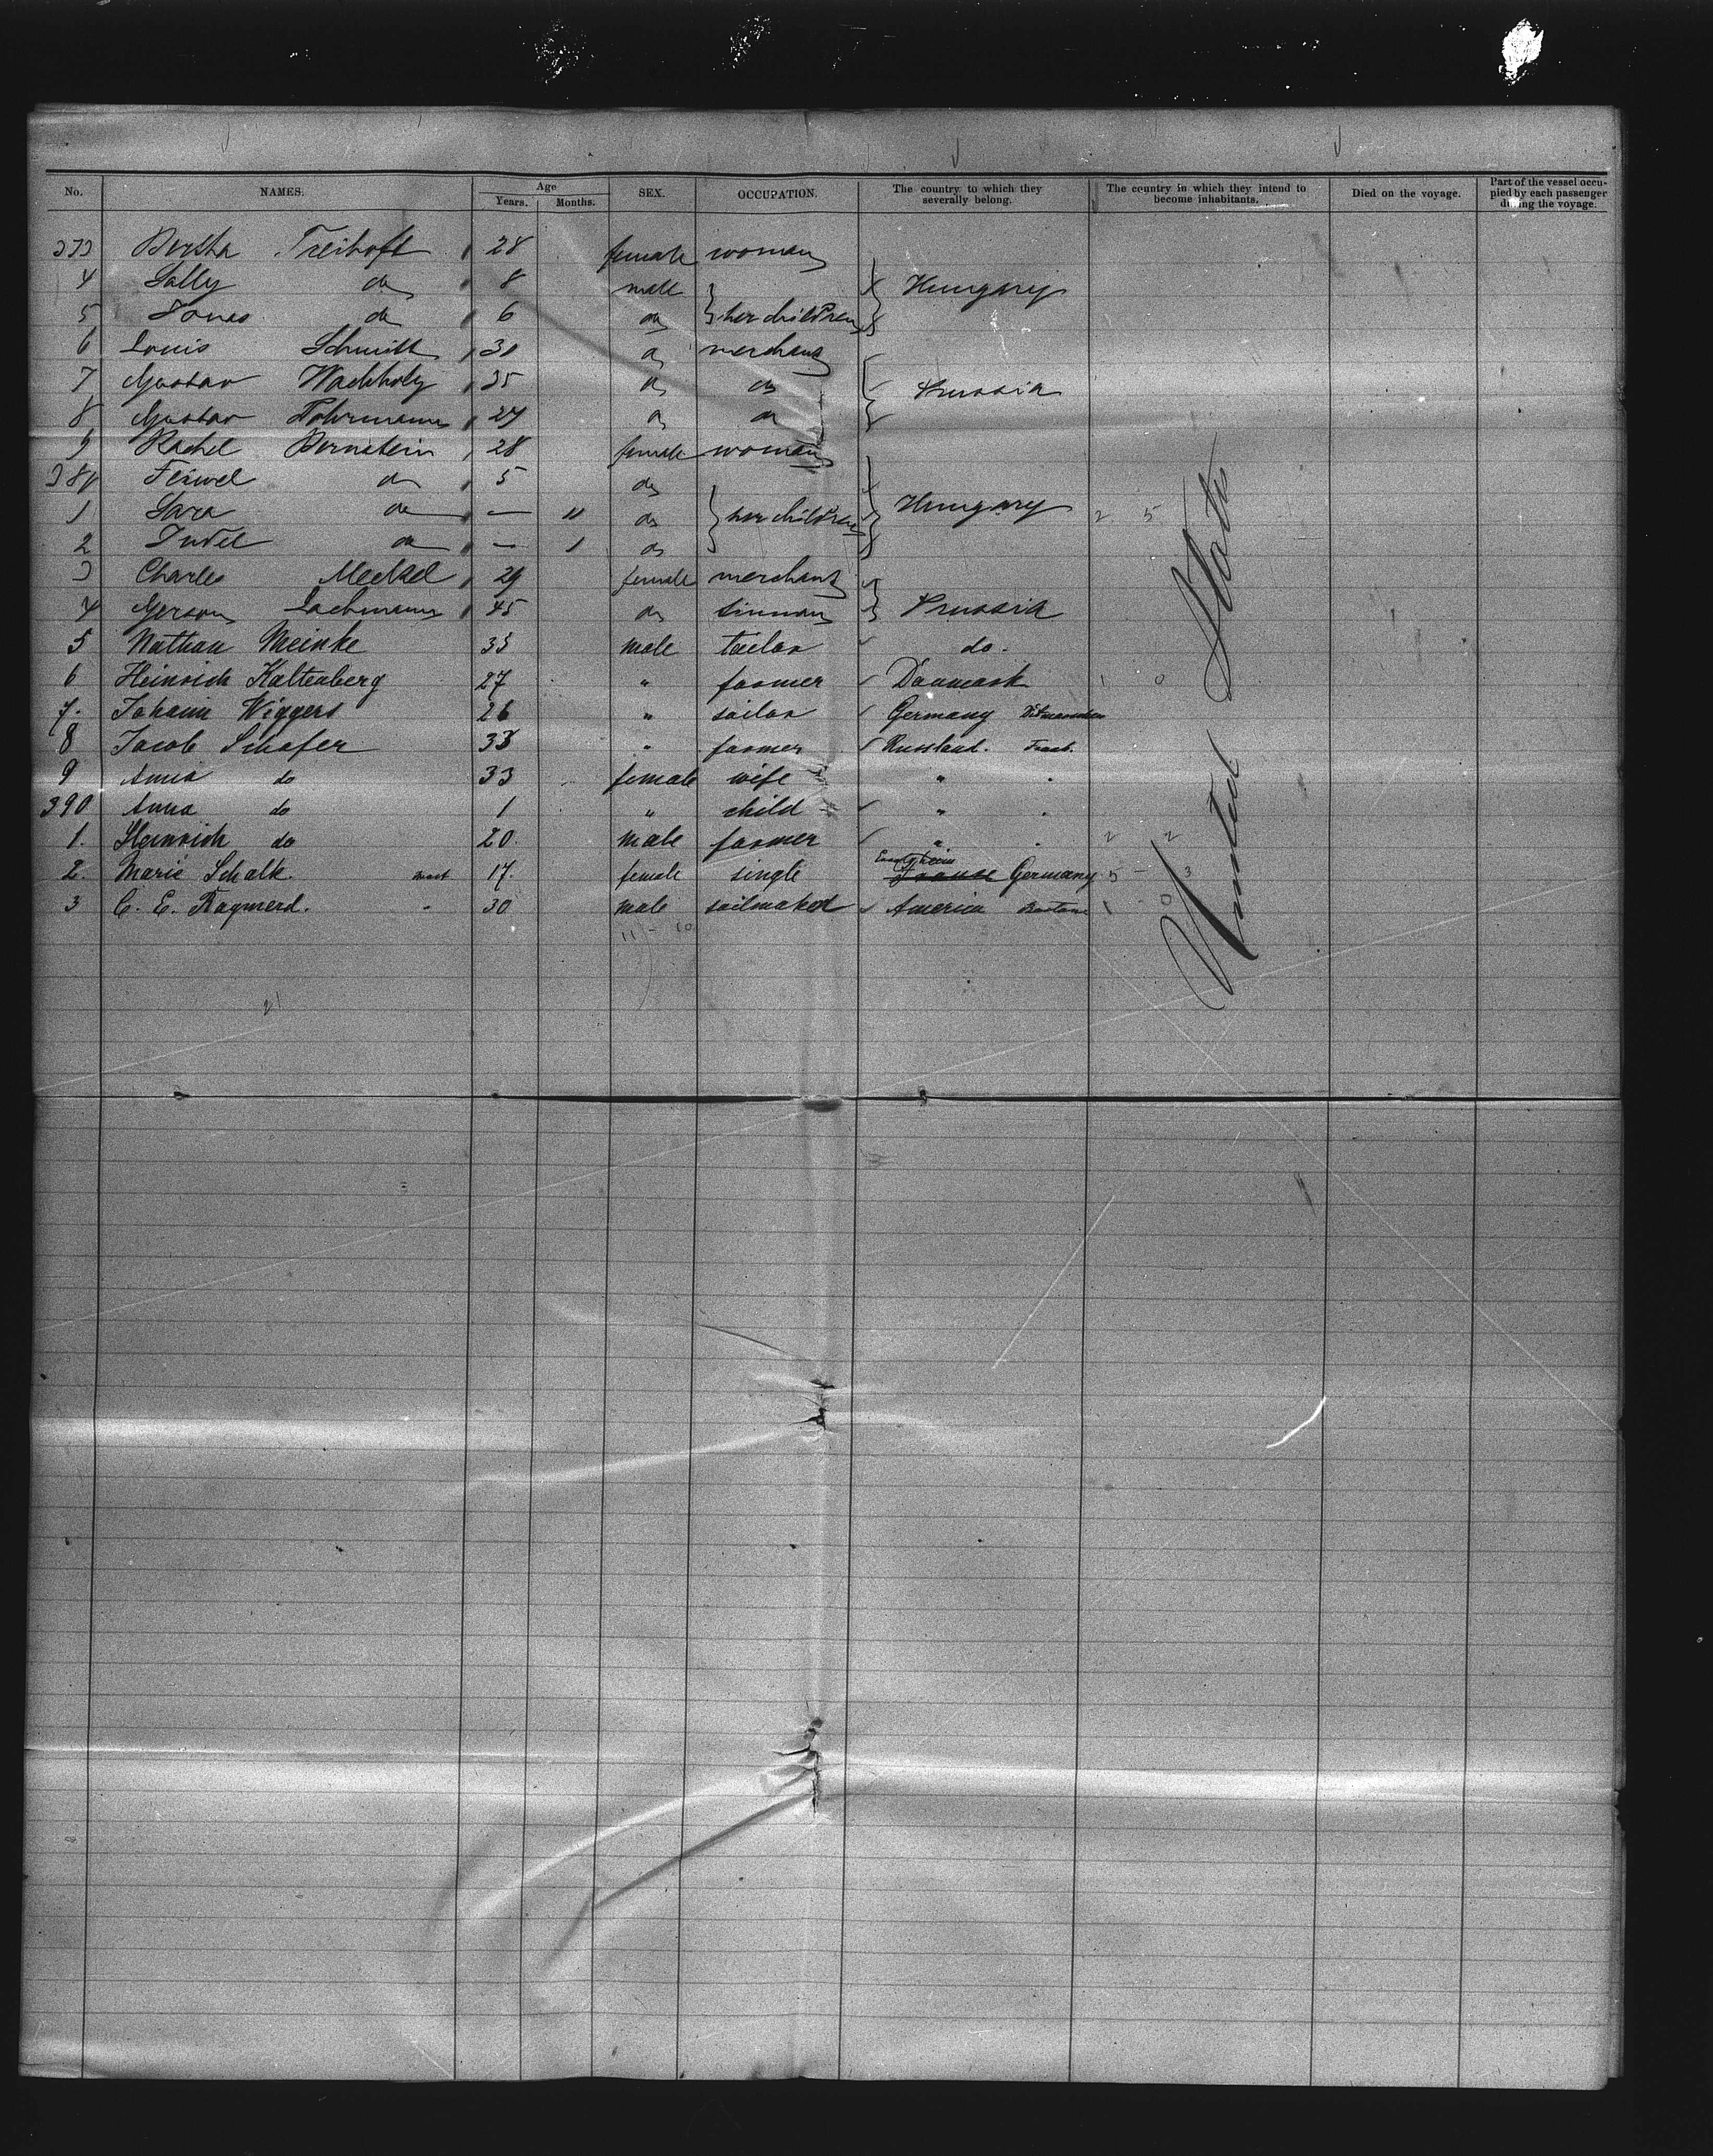 No. NAMES. Age Years. Months. SEX. OCCUPATION. The country to which they severally belong. The country in which they intend to become inhabitants. Died on the voyage. Part of the vessel occupied by each passenger during the voyage.
373 Bertha Freihoft 28 female woman
4 Sally do 8 male } Hungary
5 Jonas do 6 do } her children
6 Louis Schmidt 30 do merchant
7 Gustav Wachholz 35 do do Prussia
8 Gustav Fohrmann 27 do do
9 Rachel Bernstein 28 female woman
380 Feiwel do 5 do
1 Sara do — 11 do } her children Hungary 2 5
2 Judel do — 1 do
3 Charles Meckel 29 female merchant
4 Gerson Lachmann 45 do Prussia
5 Nathan Meinke 33 male tailor do.
6 Heinrich Kaltenberg 27 " farmer Danmark 1 0
7. Johann Wiggers 26 " sailor Germany
8 Jacob Schafer 33 " farmer Russland.
9 Anna do 33 female wife "
390 Anna do 1 " child "
1. Heinrich do 20. male farmer " 2 2
2. Marie Schalk. 17. female single Germany 5 - 3
3 C. E. Raymerd. 30 male sailmaker America 1 0
11 - 10
21
United States